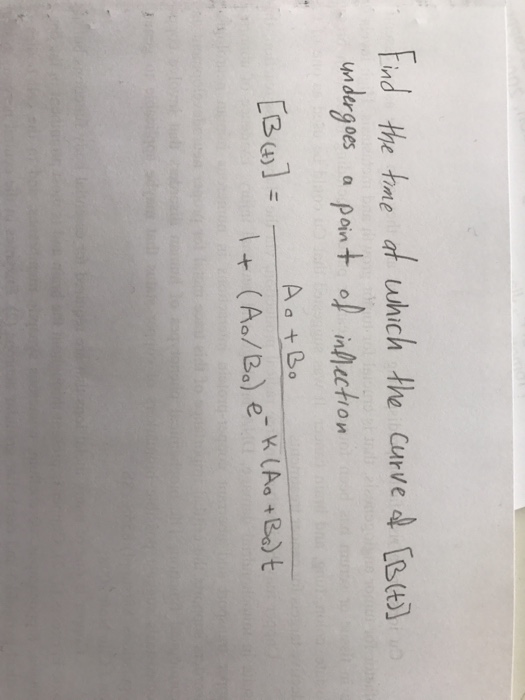 Find the time at which the curve of [B(t)]
undergoes a point of inflection
[B(t)] = A₀ + B₀ / 1 + (A₀/B₀) e^-k(A₀+B₀)t